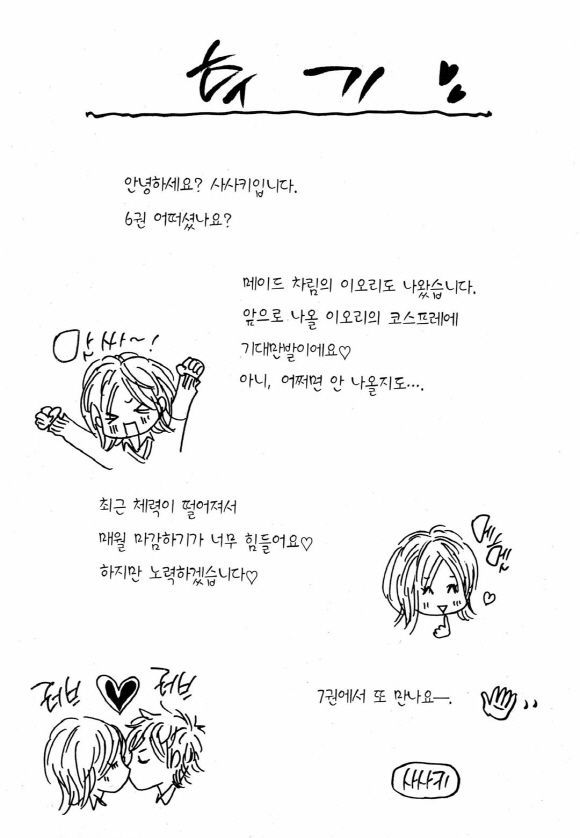 후기
안녕하세요? 사사키입니다.
6권 어떠셨나요?
메이드 차림의 이오리도 나왔습니다.
앞으로 나올 이오리의 코스프레에
기대만발이에요♡
아니, 어쩌면 안 나올지도….
만사~!
최근 체력이 떨어져서
매월 마감하기가 너무 힘들어요♡
하지만 노력하겠습니다♡
러브 러브
7권에서 또 만나요―.
사사키